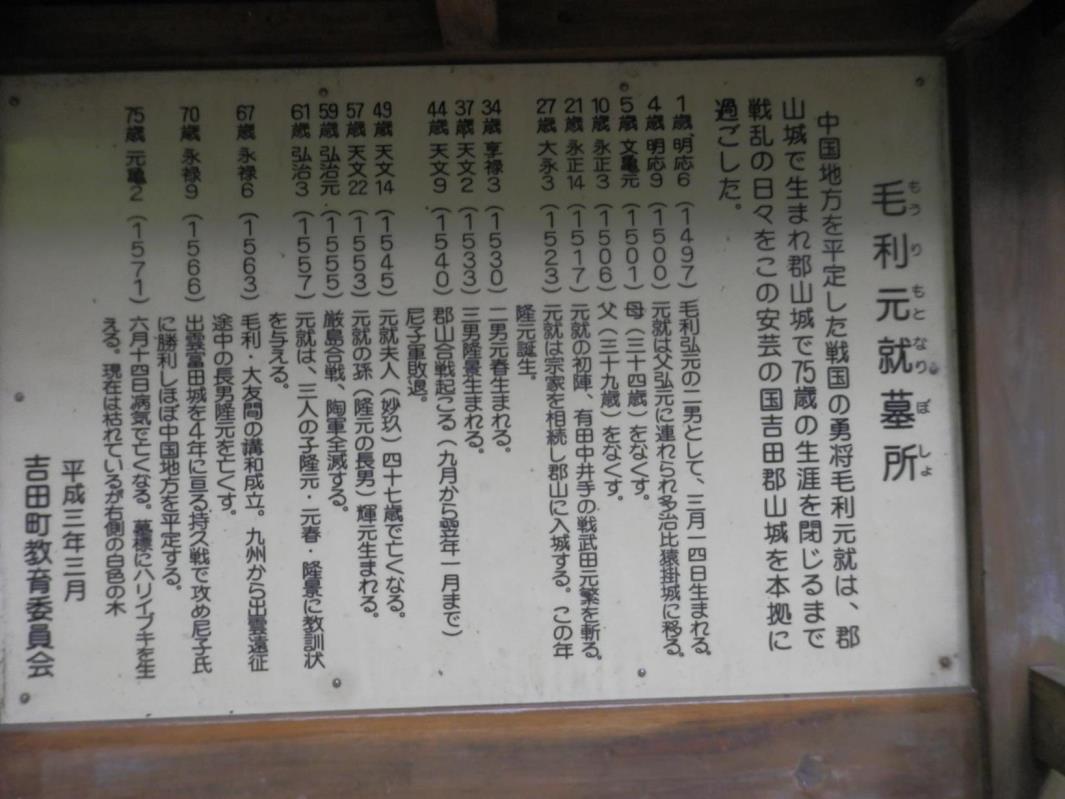 毛利元就墓所
もうりもとなりぼしょ
中国地方を平定した戦国の勇将毛利元就は、郡
山城で生まれ郡山城で75歳の生涯を閉じるまで
戦乱の日々をこの安芸の国吉田郡山城を本拠に
過ごした。
1歳、明応6（1497）毛利弘元の二男として、三月一四日生まれる。
4歳 明応9（1500）元就は父弘元に連れられ多治比猿掛城に移る。
5歳 文亀元（1501）母（三十四歳）をなくす。
10歳 永正3（1506）父（三十九歳）をなくす。
21歳 永正14（1517）元就の初陣、有田中井手の戦武田元繁を斬る。
27歳 大永3（1523）元就は宗家を相続し郡山に入城する。この年
隆元誕生。
34歳 享禄3（1530）二男元春生まれる。
37歳 天文2（1533）三男隆景生まれる。
44歳 天文9（1540）郡山合戦起こる（九月から翌年一月まで）
尼子軍敗退。
49歳 天文14（1545）元就夫人（妙玖）四十七歳で亡くなる。
57歳 天文22（1553）元就の孫（隆元の長男）輝元生まれる。
59歳 弘治元（1555）厳島合戦、陶軍全滅する。
61歳 弘治3（1557）元就は、三人の子隆元・元春・隆景に教訓状
を与える。
67歳 永禄6（1563）毛利・大友間の講和成立。九州から出雲遠征
途中の長男隆元を亡くす。
70歳 永禄9（1566）出雲富田城を4年に亘る持久戦で攻め尼子氏
に勝利しほぼ中国地方を平定する。
75歳 元亀2（1571）六月十四日病気で亡くなる。墓標にハリイブキを生
える。現在は枯れているが右側の白色の木
平成三年三月
吉田町教育委員会